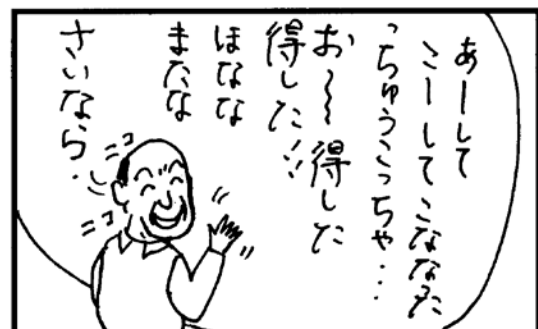 あーして
こーしてこななった
っちゅうこっちゃ・・・
お～～得した
得した!!
ほなな
またな
さいなら.
ニコ
ニコ